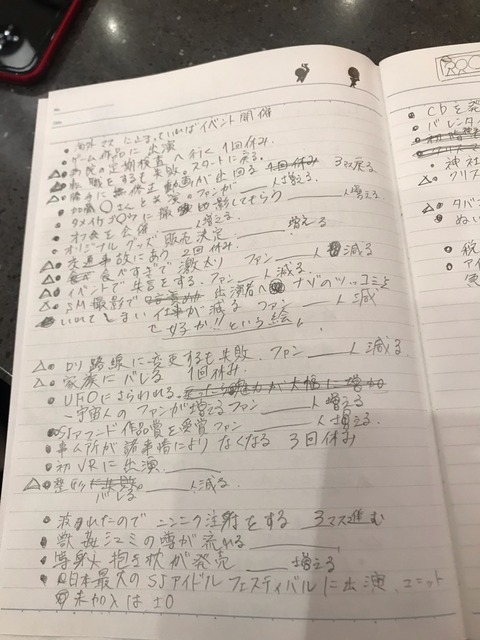 海外マスに止まっていればイベント開催
・ゲーム作品に出演
△・病院の定期検査へ行く 1回休み
△・転職をするも失敗。スタートに戻る。
△・勝手に無修正動画が出回る 3マス戻る
・加藤○さんと共演。ファンが____人増える。
____人増える
・オフ会を会催____人増える。
・オリジナルグッズ販売決定____増える
△・交通事故にあう 2回休み
△・食べすぎで激太り ファン____人減る
△・イベントで失言をする。ファン____人減る。
△・SM撮影で 出演者へナゾのツッコミを
いれてしまい仕事が減る ファン____人減
せ好が!!という絵。
△・ロリ路線に変更するも失敗。ファン____人減る。
△・家族にバレる 1回休み。
・UFOにさらわれる。
→宇宙人のファンが増えてファン____人増える
・SJアワード作品賞を受賞ファン____人増える。
・事ム所が諸事情によりなくなる 3回休み
・初VRに出演____
△・整形 バレる。____人減る。
・疲れたのでニンニク注射をする 3マス進む
・獣姦シユミの噂が流れる____
・等身大抱き枕が発売____増える
・日本最大のSJアイドルフェスティバルに出演、ユニット
未加入は±0
CDを発
バレンタイ
・神社
・クリス
△・タバ
・ぬい
・税
・アイ